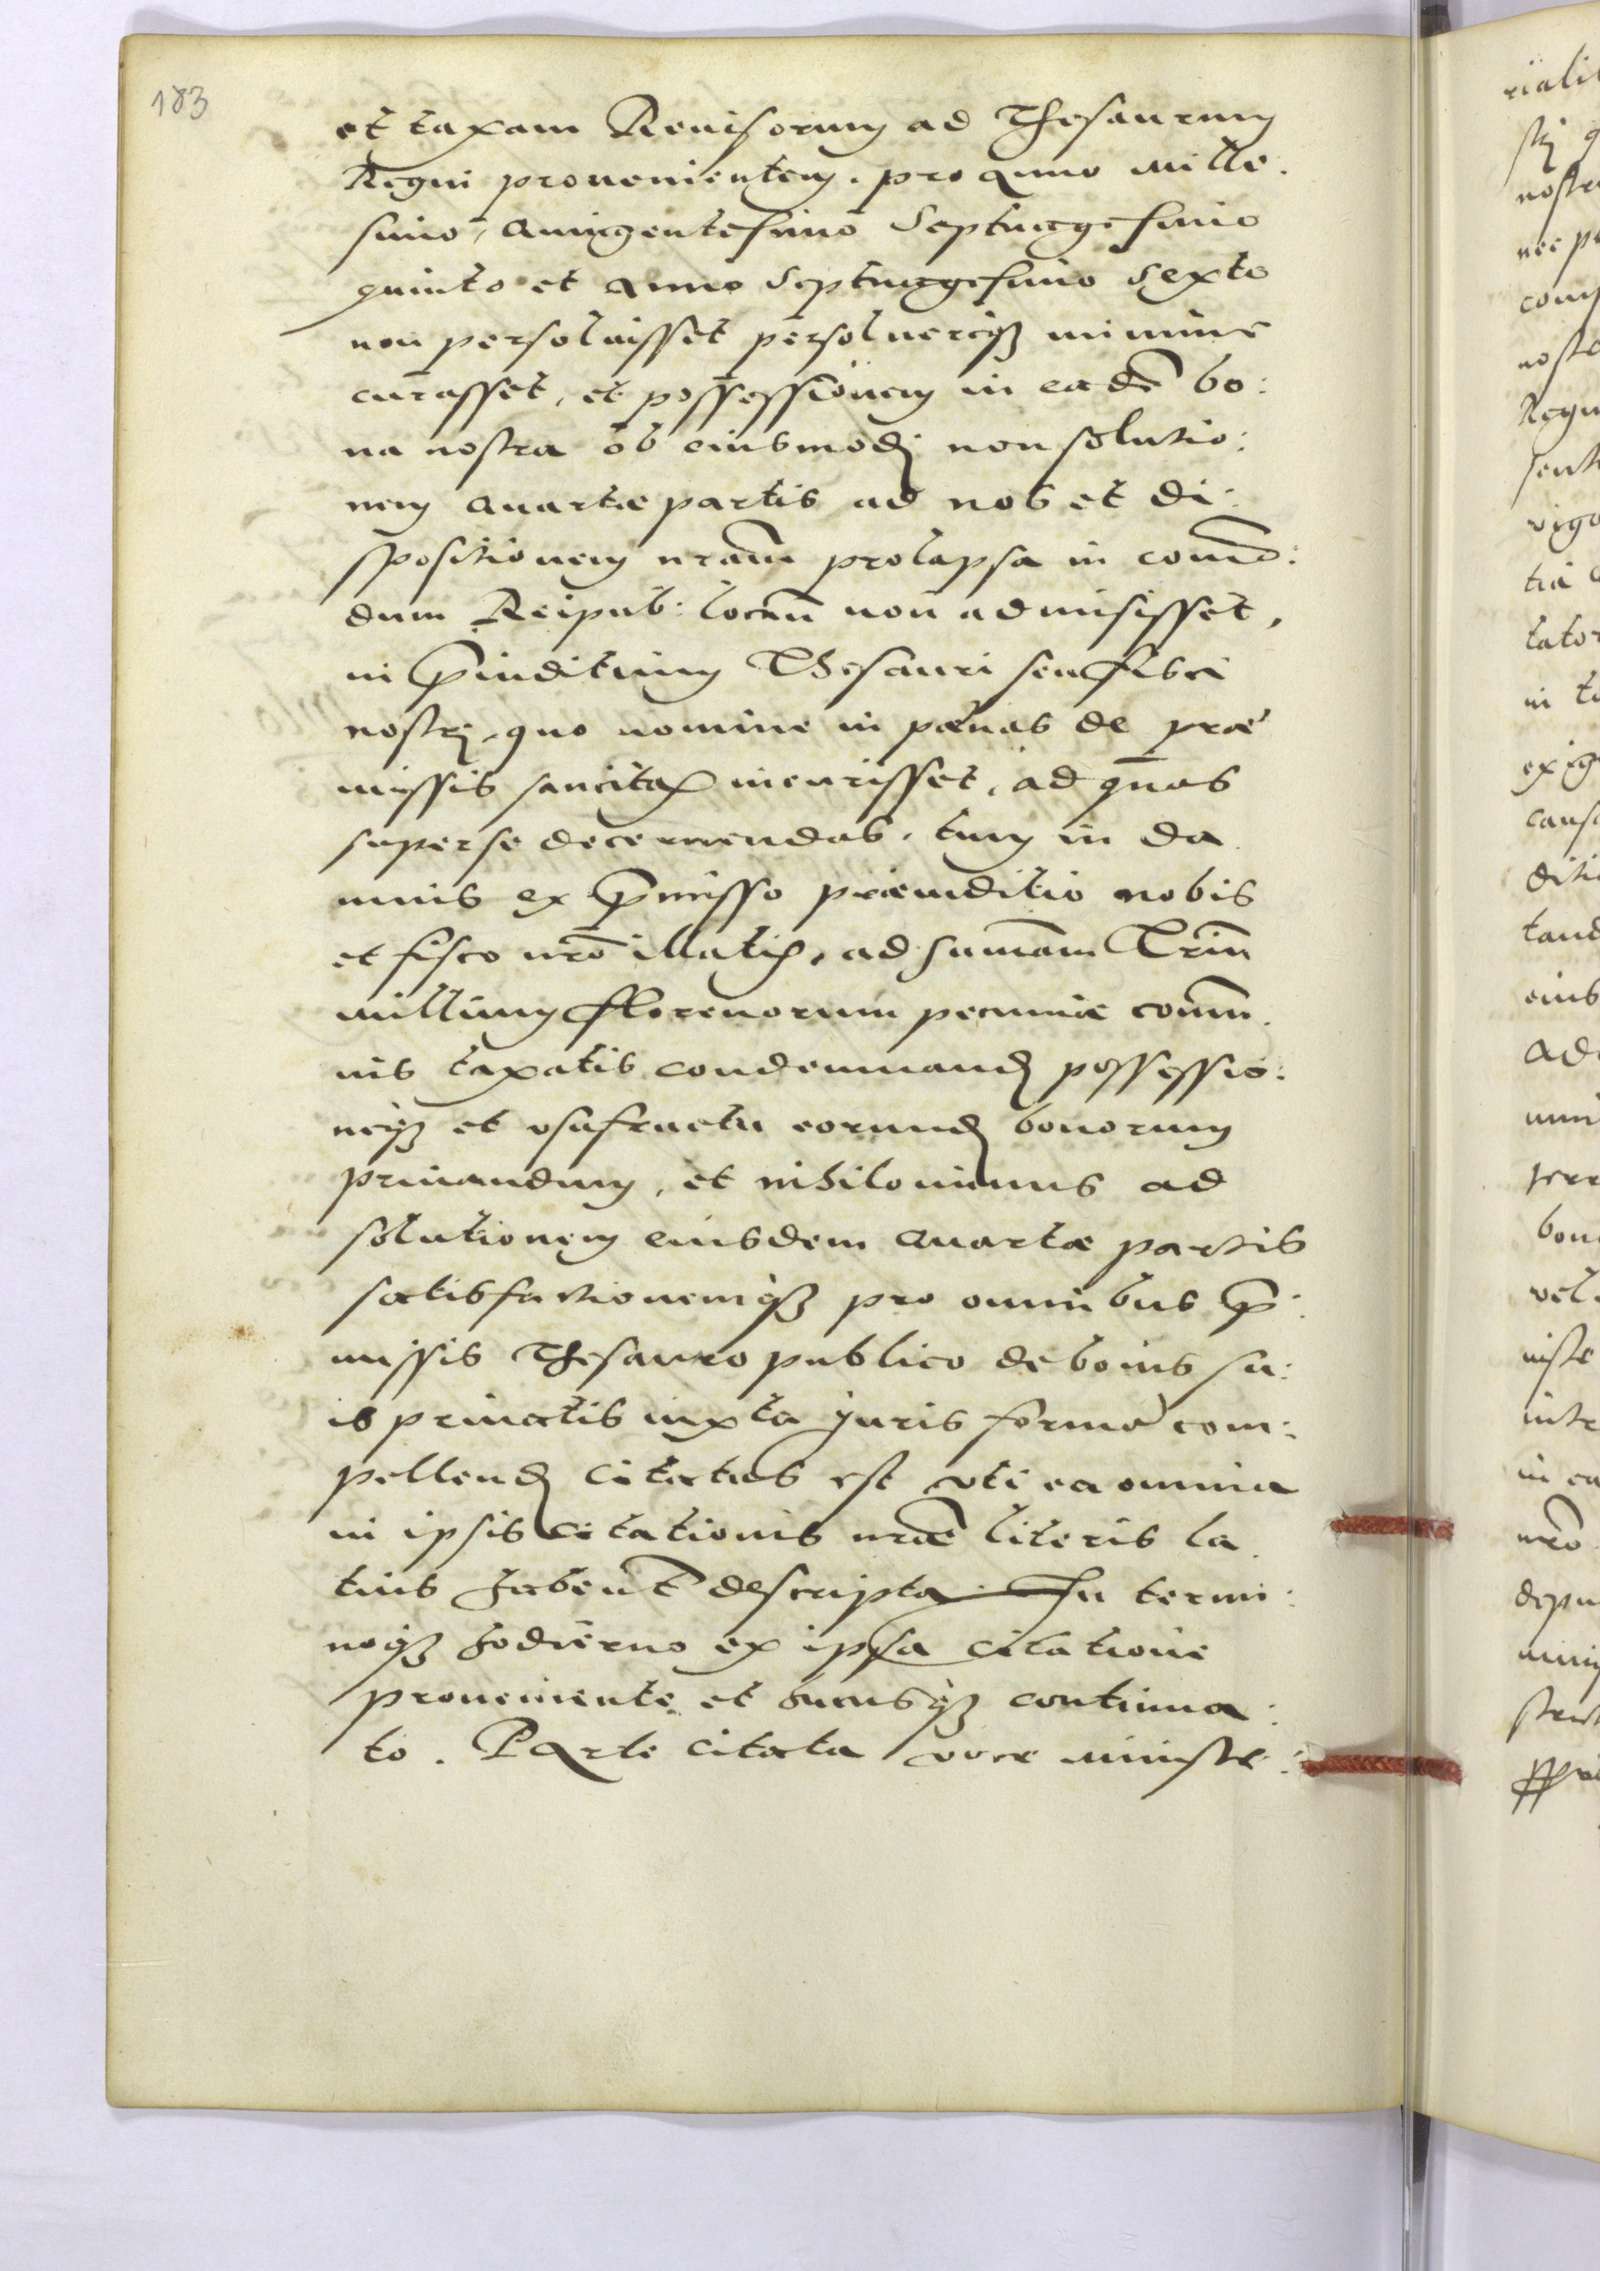 183
et taxam Reuisorum ad Thesaurum
Regni prouenientem. pro Anno mille.
simo, Quingentesimo Septuagesimo
quinto et Anno Septuagesimo Sexto
non persoluisset persoluereqȝ minime
curasset, et possessionem in eadē bo:
na nostra ob eiusmodj non solutio:
nem Quartæ partis ad nos et di:
spositionem nrām prolapsa in como:
dum Reipub: locum non admisisset,
in p̄iuditium Thesauri seu fisci
nostrj, quo nomine in pænas de præ
missis sancitas incurisset, ad quas
super se decernendas, tum in da
mnis ex p̄misso præiuditio nobis
et fisco nrō illatis, ad sumam Trium
millium Florenorum pecuniæ commu
nis taxatis condemnand possessio:
neqȝ et vsufructu eorund bonorum
priuandum, et nihilominus ad
solutionem eiusdem Quartæ partis
satisfactionemqȝ pro omnibus p̄:
missis Thesauro publico de bonis su:
is priuatis iuxta juris formā com:
pellend Citatus est vti ea omnia
in ipsis Citationis nræ literis la
tius habent descripta. In termi:
noqȝ hodierno ex ipsa Citatione
proueniente et hucusqȝ continua:
to. Parte Citata voce ministe:
nostr
comp
nost
Regn
vigo
tia
tator
in t
exig
caus
diti
tand
eius
Ad
bon
vel
niste
intr
in ea
nrō
depu